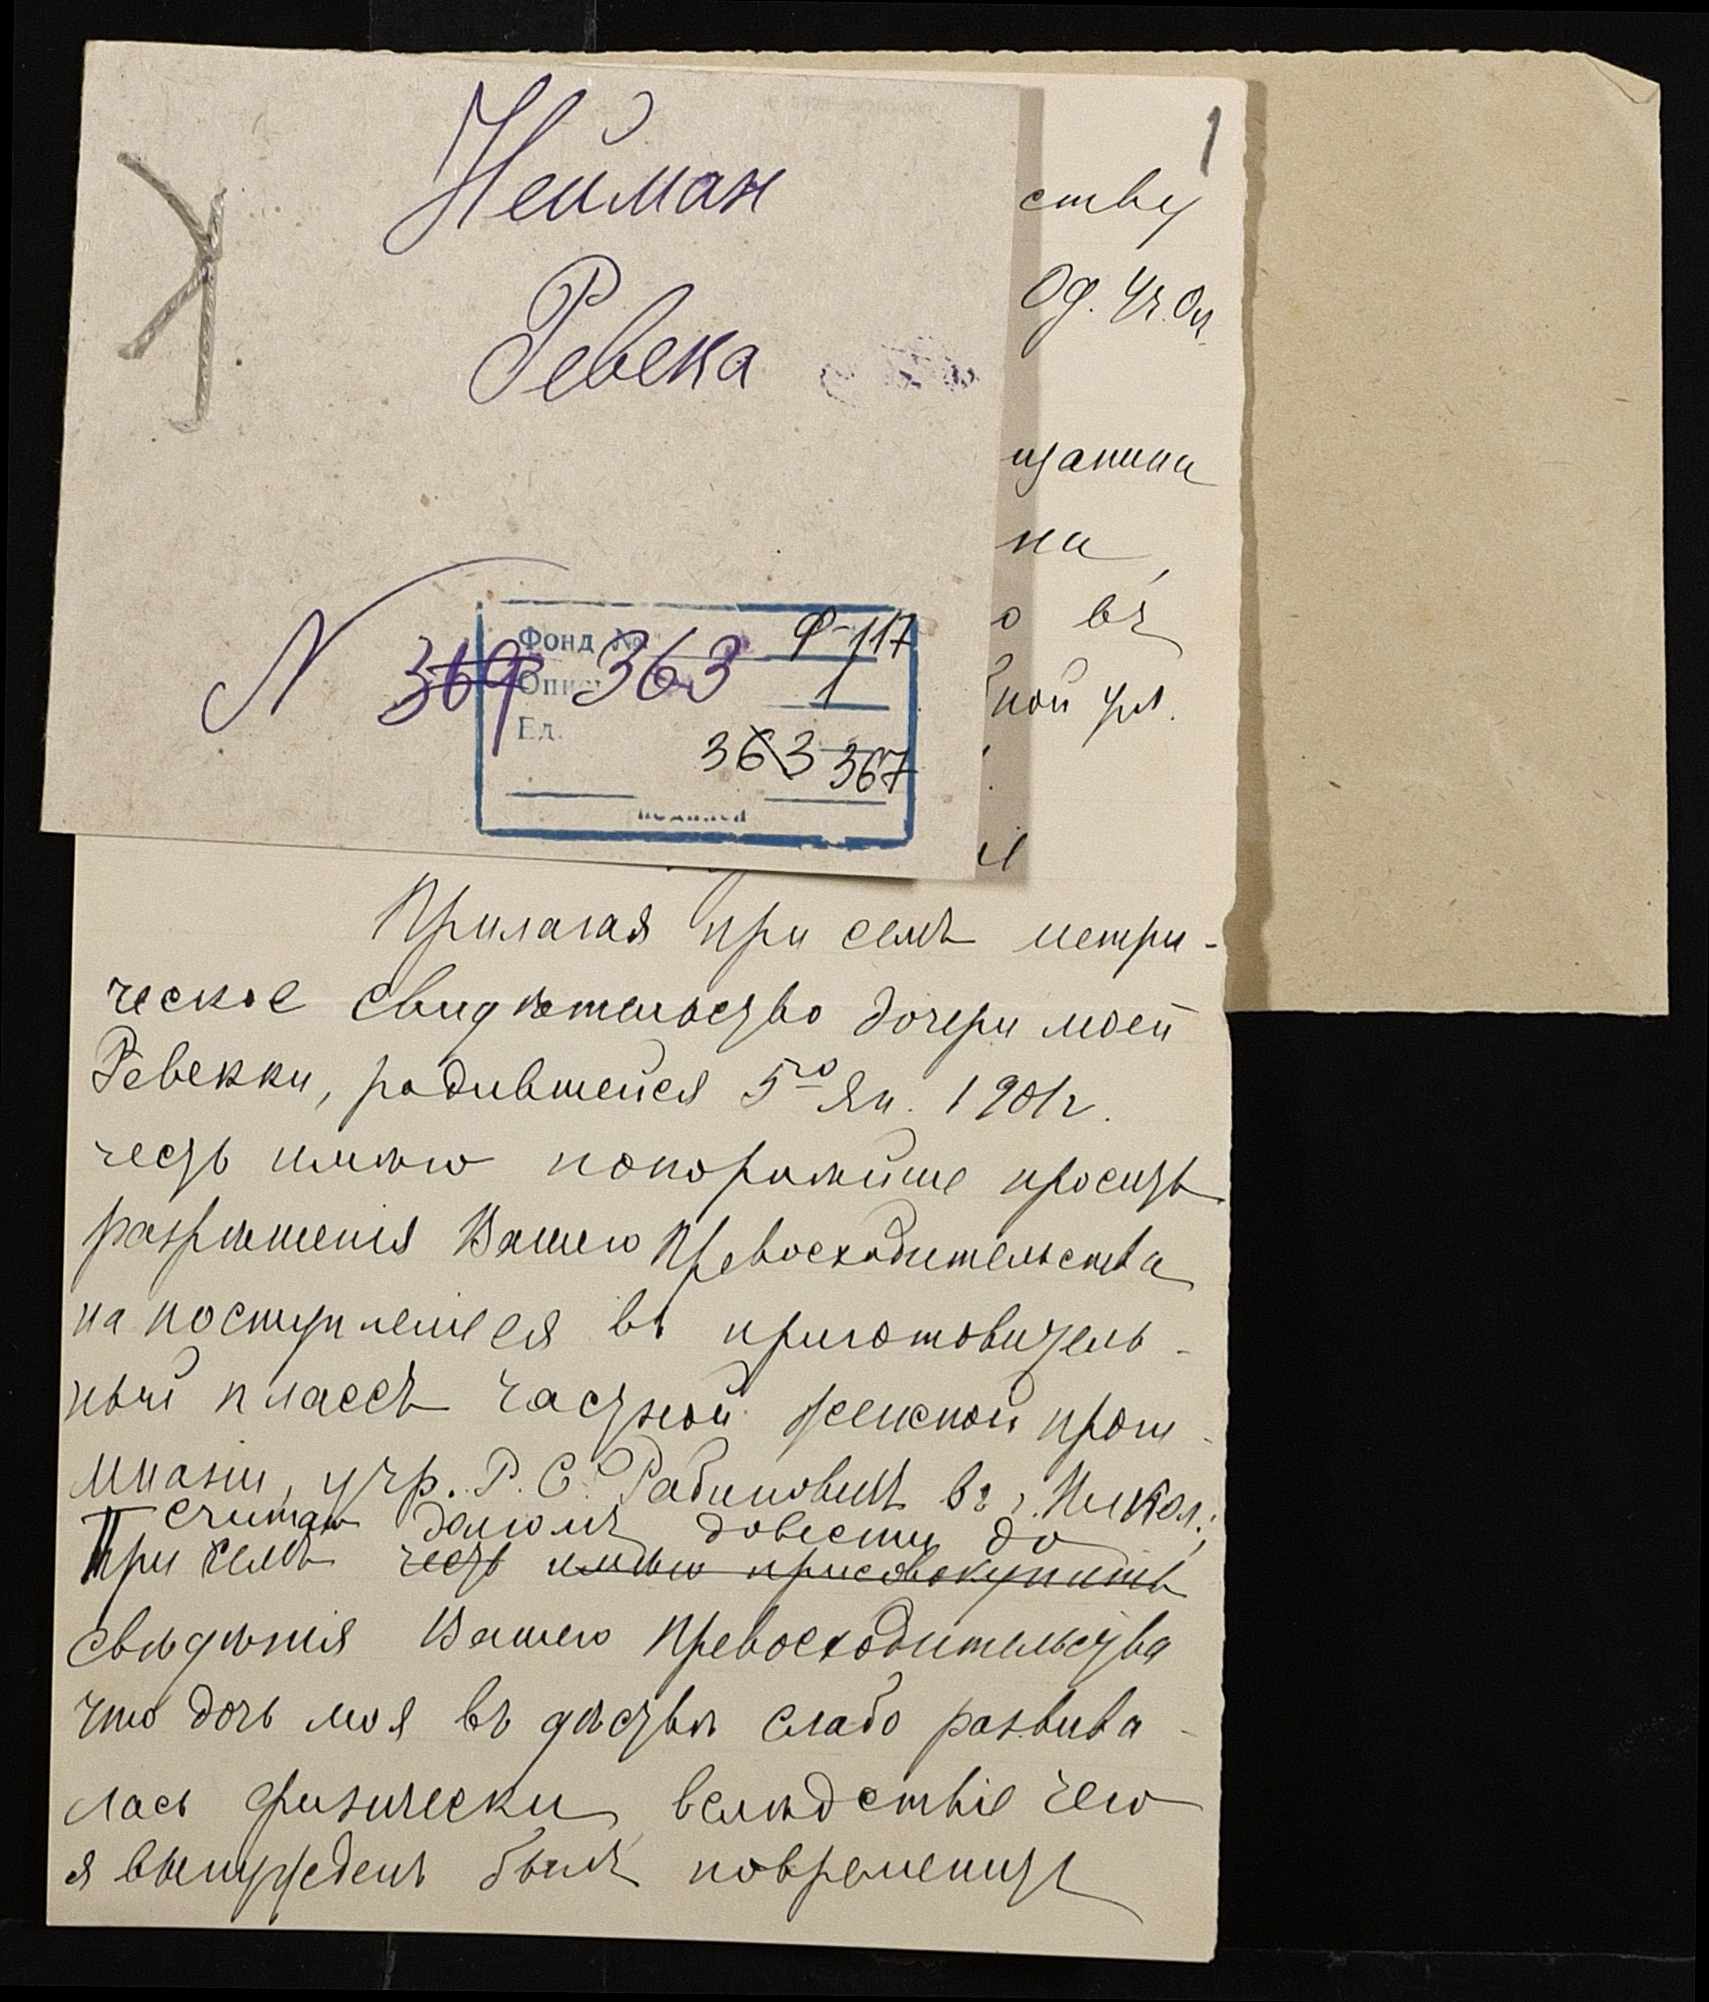 1
Нейман
Ревека
N 369 363
Фонд № Ф-117
Опис 1
Ед. 363 367
ству
Од. Уч. Ок.
щанина
на,
о въ
ной ул.
Прилагая при семъ метри-
ческое свидѣтельство дочери моей
Ревекки, родившейся 5го Ян. 1901г.
честь имѣю покорнѣйше просить
разрѣшенія Вашего Превосходительства
на поступленіе ея въ приготовитель-
ный классъ частной женской проги-
мназіи, учр. Р. С. Рабиновичъ въ г. Никол.;
считаю долгомъ довести до
При семъ честь имѣю присовокупить
свѣдѣнія Вашего Превосходительства
что дочь моя въ дѣтствѣ слабо развива-
лась физически, вслѣдствіе чего
я вынужденъ былъ повременить